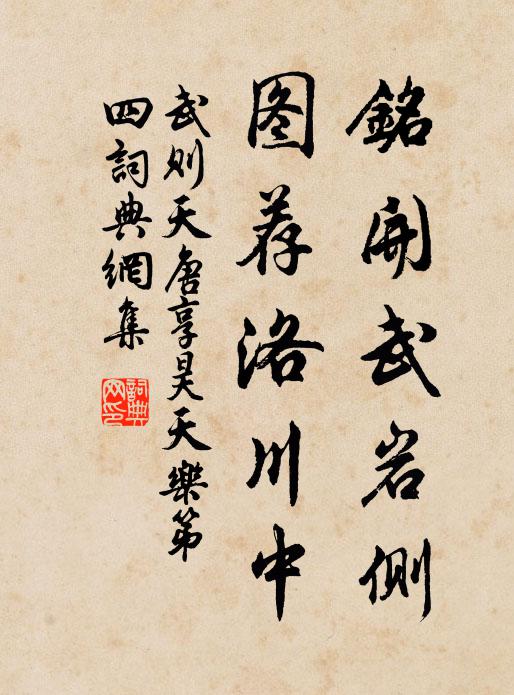 銘開武岩側
图荐洛川中
武则天唐享昊天樂第
四詞典網集
詞典
网印